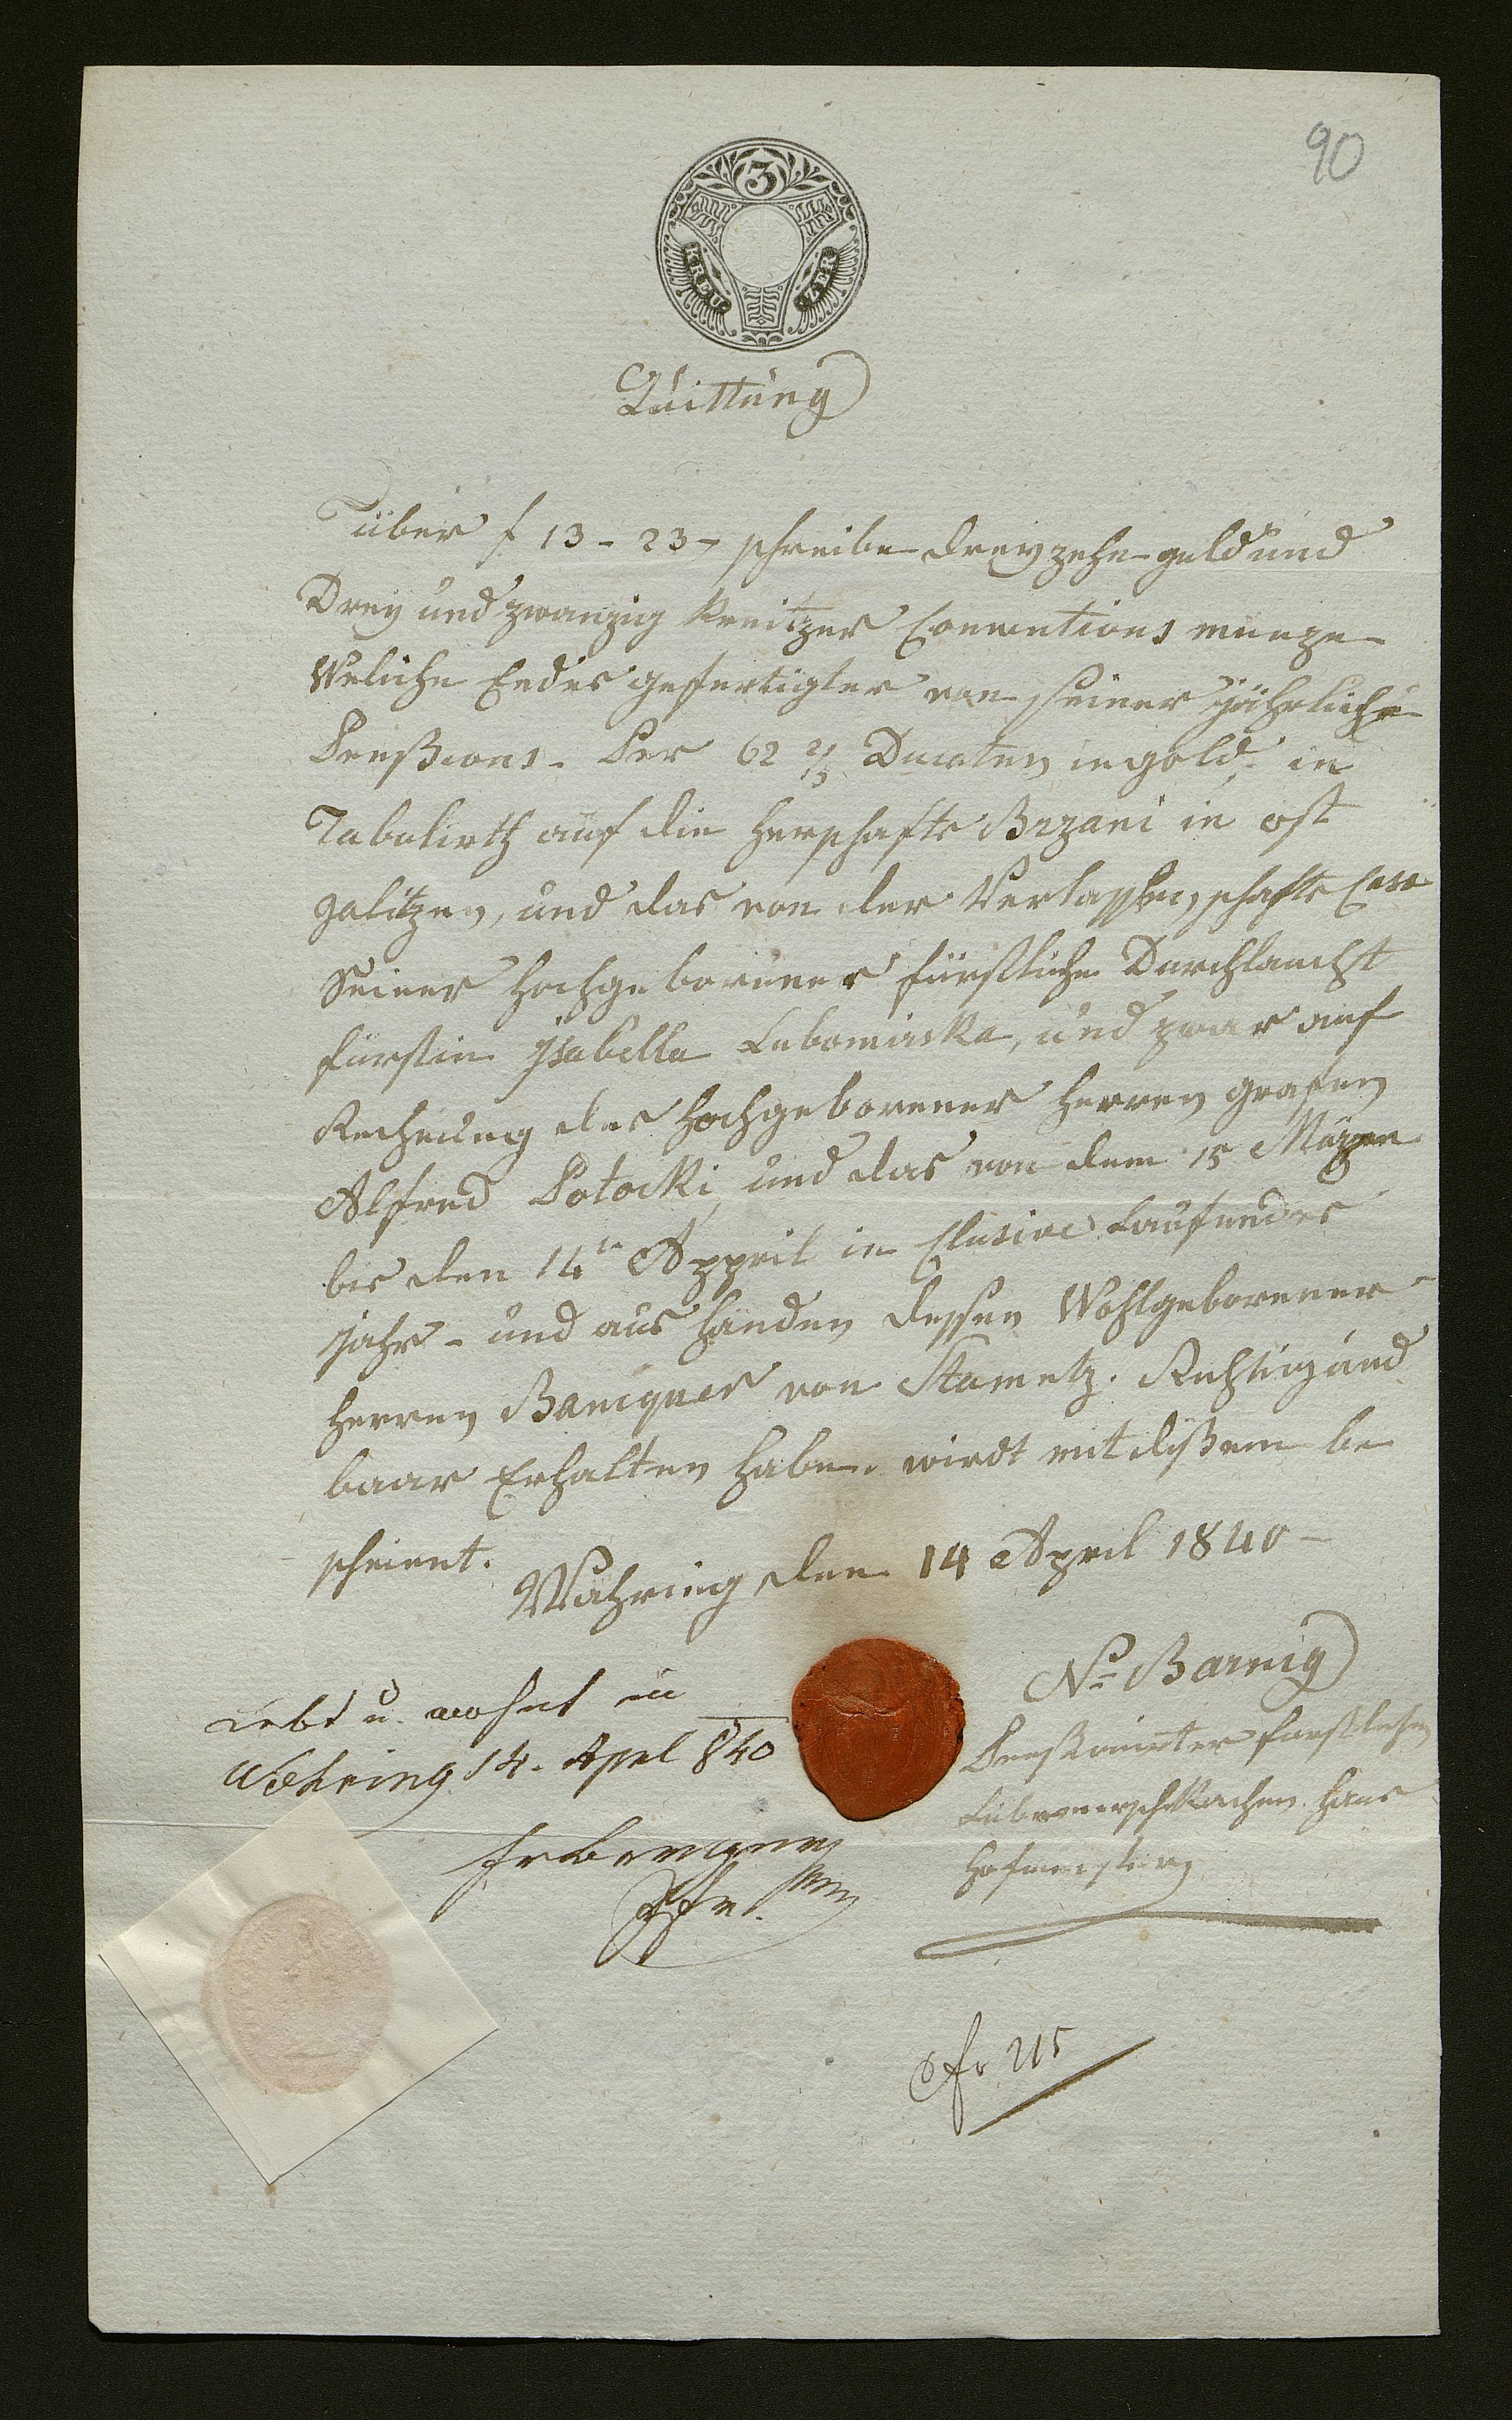 90
3
KREU ZER
Quittung
über f 13 - 23 - schreibe dreyzehn guld und
Drey und zwanzig Kreitzer Conventions munze
Weliche Endes gefertigter von seiner jährliche
Penßions. Per 62 2/3 Ducaten in gold, in
Tabolirth auf die Herschafts Brzani in ost
galitzen, und das von der Verlassenschafts
Seiner Hochgeborener fürstliche Durchlaucht
fürstin Jsabella Lubomirska, und zwar auf
Rechnung des Hochgeborener Herren grafen
Alfred Potocki, und das von dem 15 Märzen
bis den 14tn Appril in Clusive Laufendes
jahr - und aus Händen dessen Wohlgeborener
Herren Bancquer von Stametz. Richtig und
baar Erhalten habe. wirdt mit dißem be
scheient.
Währing den 14 April 1840 -
No Barnig
Penßionirter fürstlichen
Haus
Hofmeister
Lebt u. wohnt in
Währing 14. Aprl 840
Pfr.
fr 215